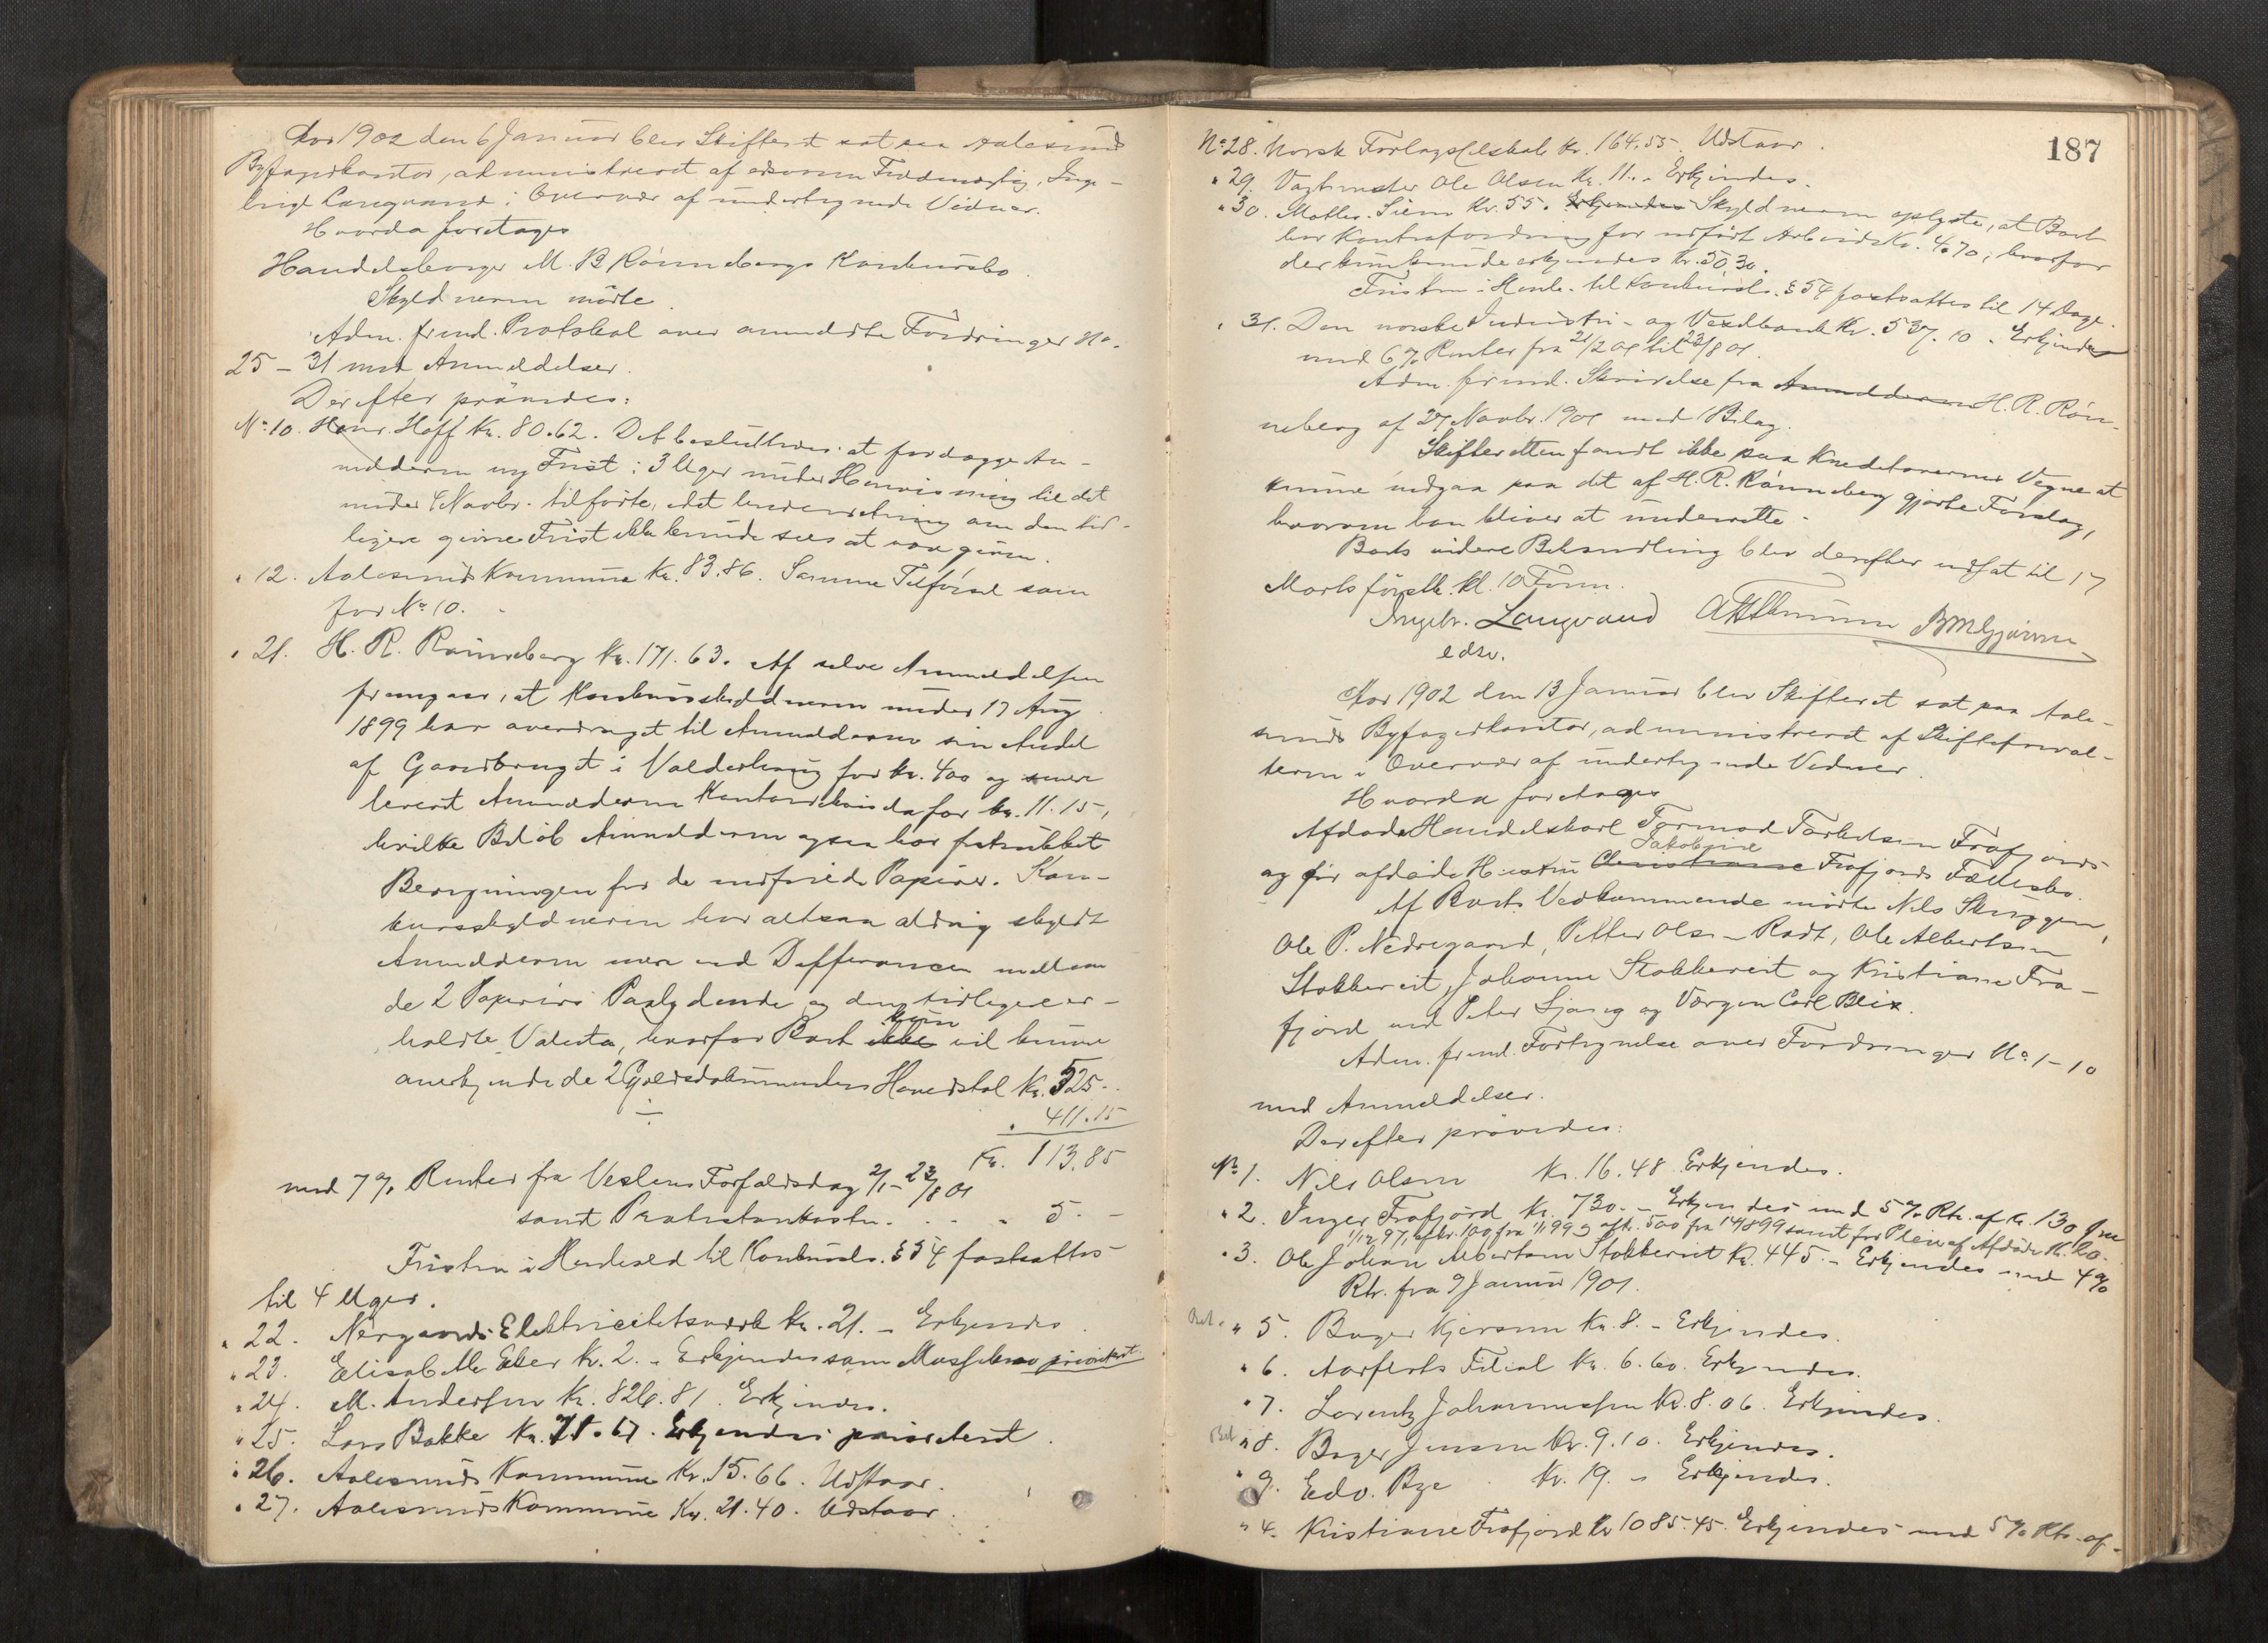 Aar 1902 den 6 Januar blev Skifteret sat paa Aalesunds
Byfogedkontor, administreret af edsvoren Fuldmægtig, Inge-
brigt Langvand i Overvær af undertegnede Vidner.
Hvorda foretoges
Handelsborger M. B. Rønnebergs Konkursbo.
Skyldneren mødte.
Adm. freml. Protokol over anmeldte Fordringer No.
25 - 31 med Anmeldelser.
Derefter prøvedes:
No. 10. Henr. Hoff Kr. 80.62. Det besluttedes at forelægge An-
melderen ny Frist: 3 Uger under Henvisning til det
under 4 Novbr. tilførte, idet Underretning om den tid-
ligere givne Frist ikke kunde sees at være given.
" 12. Aalesunds Kommune Kr. 83.86. Samme Tilførsel som
for No. 10.
" 21. H. R. Rønneberg Kr. 171.63. Af selve Anmeldelsen
fremgaar, at Konkursskyldneren under 17 Aug
1899 har overdraget til Anmelderen sin Andel
af Gaardbruget i Valderhaug for kr. 400 og
leveret Anmelderen for kr. 11.15,
hvilke Beløb Anmelderen ogsaa har fratrukket
Beregningen for de Papirer. Kon-
kursskyldneren har altsaa aldrig skyldt
Anmelderen mere end Differancen mellem
de 2 Papirers Paalydende og den tidligere er-
holdte Valuta, hvorfor Boet ikke kun vil kunne
anerkjende de 2 Gjældsdokumenters Hovedstol Kr. 525.-
÷ " 411.15
Kr. 113.85
med 7 % Renter fra Vexlens Forfaldsdag 2/1 - 23/8 01
samt Protestomkostn. . . . " 5.-
Fristen i Henhold til Konkursl. § 54 fastsattes
til 4 Uger.
" 22. Nørgaards Elektricitetsværk Kr. 21. - Erkjendes.
" 23. Elisabeth Kr. 2. - Erkjendes som Massekrav prioritert.
" 24. M. Andersen Kr. 826.81. Erkjendes.
" 25. Lars Bakke Kr. 71.67. Erkjendes prioriteret.
" 26. Aalesunds Kommune Kr. 15.66. Udstaar.
" 27. Aalesunds Kommune Kr. 21.40. Udstaar.
187
No. 28. Norsk Forlagsselskab Kr. 164.55. Udstaar.
" 29. Vagtmester Ole Olsen Kr. 11. - Erkjendes.
" 30. Siem Kr. 55. Erkjendes Skyldneren oplyste, at Boet
har Kontrafordring for udført Arbeide Kr. 4.70, hvorfor
der kun kunde erkjendes kr. 50.30.
Fristen i Henh. til Konkursl. § 54 fastsattes til 14 Dage.
" 31. Den norske Industri- og Vexelbank Kr. 537.10. Erkjendes
med 6 % Renter fra 21/2 01 til 23/8 01.
Adm. freml. Skrivelse fra Anmelderen H. R. Røn-
neberg af 27 Novbr. 1901 med 1 Bilag.
Skifteretten fandt ikke paa Kreditorernes Vegne at
kunne indgaa paa det af H. R. Rønneberg gjorte Forslag,
hvorom han bliver at underrette.
Boets videre Behandling blev derefter udsat til 17
Marts førstk. kl. 10 Form.
Ingebr. Langvand
edsv.
Aar 1902 den 13 Januar blev Skifteret sat paa Aale-
sunds Byfogedkontor, administreret af Skifteforval-
teren i Overvær af undertegnede Vidner.
Hvorda foretoges
Afdøde Handelskarl Tormod Torkelsen Frafjords
og før afdøde Hustru Christianne Jakobine Frafjords Fællesbo.
Af Boets Vedkommende mødte Nils Skuggen,
Ole P. Nedregaard, Petter Olsen Radt, Ole Albertsen
Stokkereit, Johanne Stokkereit og Kristiane Fra-
fjord ved Peter og Værgen Carl Blix.
Adm. freml. Fortegnelse over Fordringer No. 1-10
med Anmeldelser.
Derefter prøvedes:
No. 1. Nils Olsen Kr. 16.48 Erkjendes.
" 2. Inger Frafjord Kr. 730. - Erkjendes med 5 % Rtr. af kr. 130 fra
1/12 97, af kr. 100 fra 1/1 99 og af kr. 500 fra 14/8 99 samt for Pleie af Afdøde Kr. 20.
" 3. Ole Johan Albertsen Stokkereit Kr. 445. - Erkjendes med 4 %
Rtr. fra 9 Januar 1901.
" 5. Bager Kr. 8. - Erkjendes.
" 6. Filial Kr. 6.60. Erkjendes.
" 7. Lorentz Johannessen Kr. 8.06. Erkjendes.
" 8. Bager Jensen Kr. 9.10. Erkjendes.
" 9. Edv. Bye Kr. 19. - Erkjendes.
" 4. Kristiane Frafjord Kr 1085.45. Erkjendes med 5 % Rtr. af